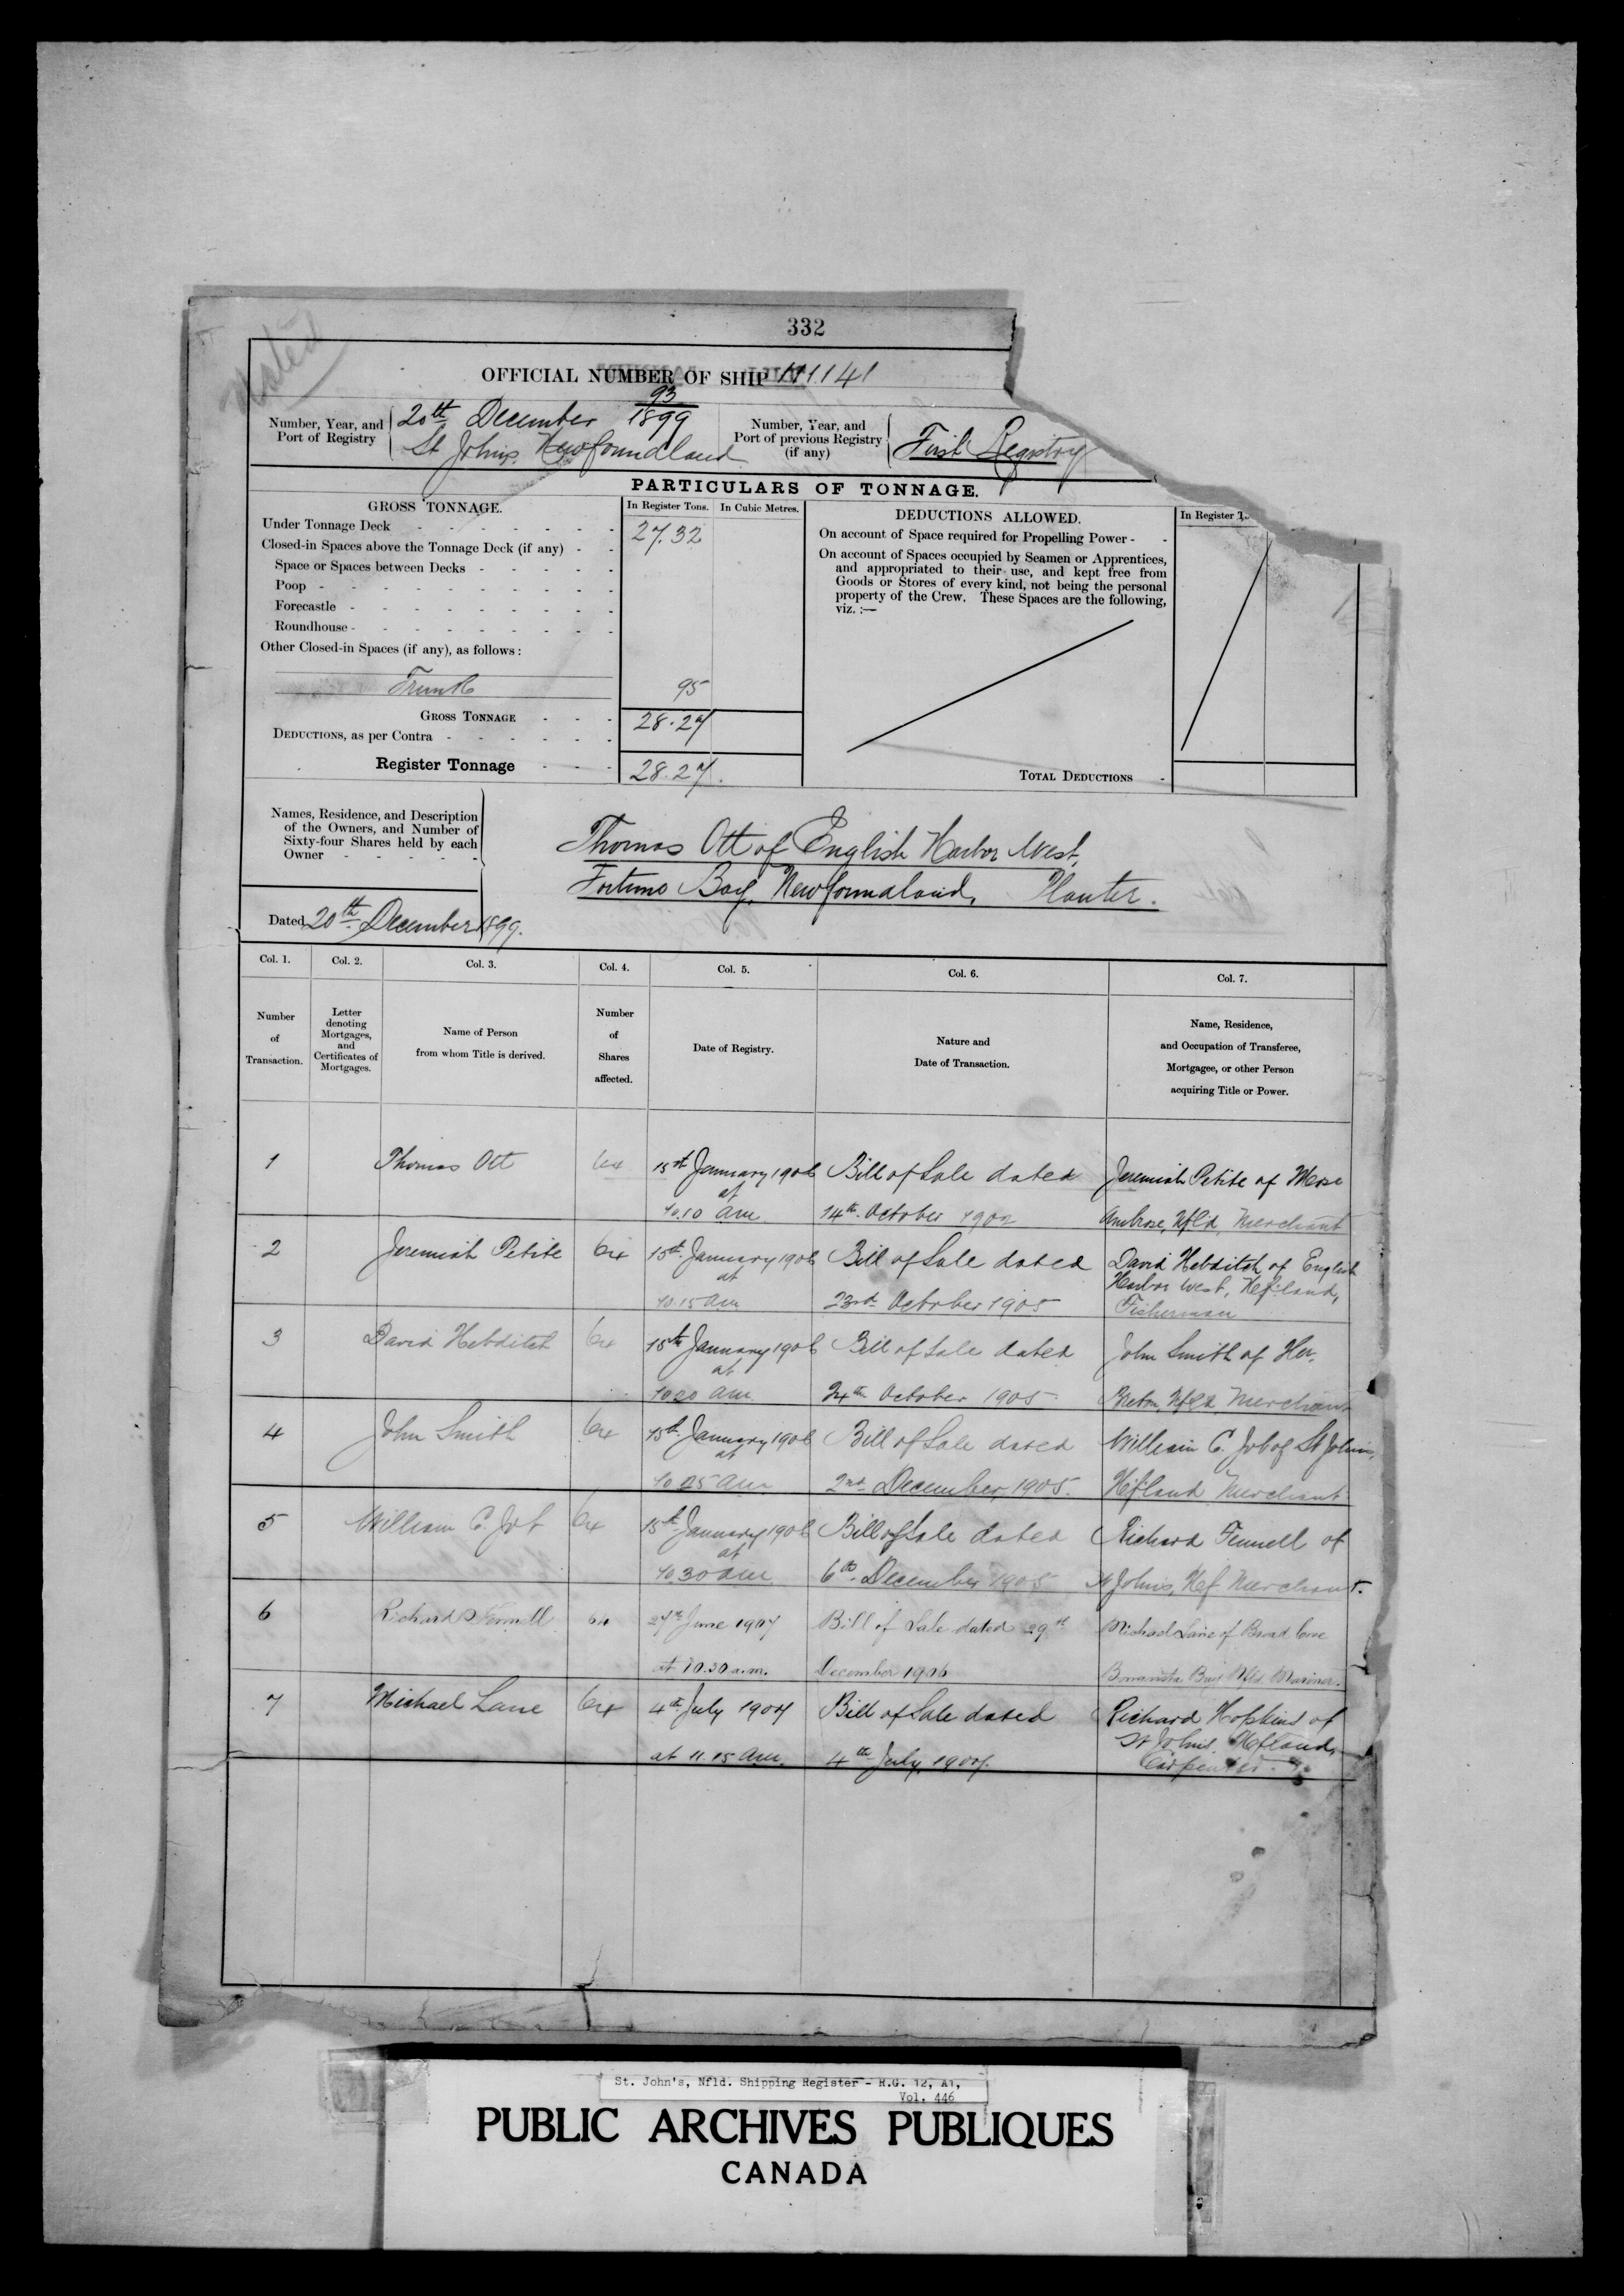 332
OFFICIAL NUMBER OF SHIP 111141
Number, Year, and Port of Registry
20th December 93/1899
St Johns Newfoundland
Number, Year, and Port of previous Registry (if any)
First Registry
PARTICULARS OF TONNAGE.
GROSS TONNAGE.
In Register Tons.
In Cubic Metres.
DEDUCTIONS ALLOWED.
In Register
Under Tonnage Deck 27.32
Closed-in Spaces above the Tonnage Deck (if any)
Space or Spaces between Decks
Poop
Forecastle
Roundhouse
Other Closed-in Spaces (if any), as follows:
Trunk 95
GROSS TONNAGE 28.27
DEDUCTIONS, as per Contra
Register Tonnage 28.27.
On account of Space required for Propelling Power
On account of Spaces occupied by Seamen or Apprentices,
and appropriated to their use, and kept free from
Goods or Stores of every kind, not being the personal
property of the Crew. These Spaces are the following,
viz.:—
TOTAL DEDUCTIONS
Names, Residence, and Description
of the Owners, and Number of
Sixty-four Shares held by each
Owner
Thomas Ott of English Harbor West,
Fortune Bay, Newfoundland, Planter.
Dated 20th December 1899.
Col. 1.
Number
of
Transaction.
Col. 2.
Letter
denoting
Mortgages,
and
Certificates of
Mortgages.
Col. 3.
Name of Person
from whom Title is derived.
Col. 4.
Number
of
Shares
affected.
Col. 5.
Date of Registry.
Col. 6.
Nature and
Date of Transaction.
Col. 7.
Name, Residence,
and Occupation of Transferee,
Mortgagee, or other Person
acquiring Title or Power.
1 Thomas Ott 64 15th January 1906 Bill of Sale dated Jeremiah Petite of Mose
at
10.10 am 14th October 1902 Ambrose, Nfld, Merchant
2 Jeremiah Petite 64 15th January 1906 Bill of Sale dated David Hebditch of English
at Harbor West, Nfland,
10.15 am 23rd October 1905 Fisherman
3 David Hebditch 64 15th January 1906 Bill of Sale dated John Smith of Her.
at
10.20 am 24th October 1905 Breton, Nfld Merchant
4 John Smith 64 15th January 1906 Bill of Sale dated William C. Job of St Johns,
at
10.25 am 2nd December, 1905. Nfland Merchant
5 William C. Job 64 15th January 1906 Bill of Sale dated Richard Fennell of
at
10.30 am 6th December 1905 St Johns, Nef Merchant.
6 Richard Fennell 64 27th June 1907 Bill of Sale dated 29th Michael Lane of Broad Cove
at 10.30 a.m. December 1906 Bonavista Bay Nfld Mariner.
7 Michael Lane 64 4th July 1907 Bill of Sale dated Richard Hopkins of
St Johns, Nfland,
at 11.15 am. 4th July, 1907. Carpenter.
St. John's, Nfld. Shipping Register - R.G. 12, A1,
Vol. 446
PUBLIC ARCHIVES PUBLIQUES
CANADA